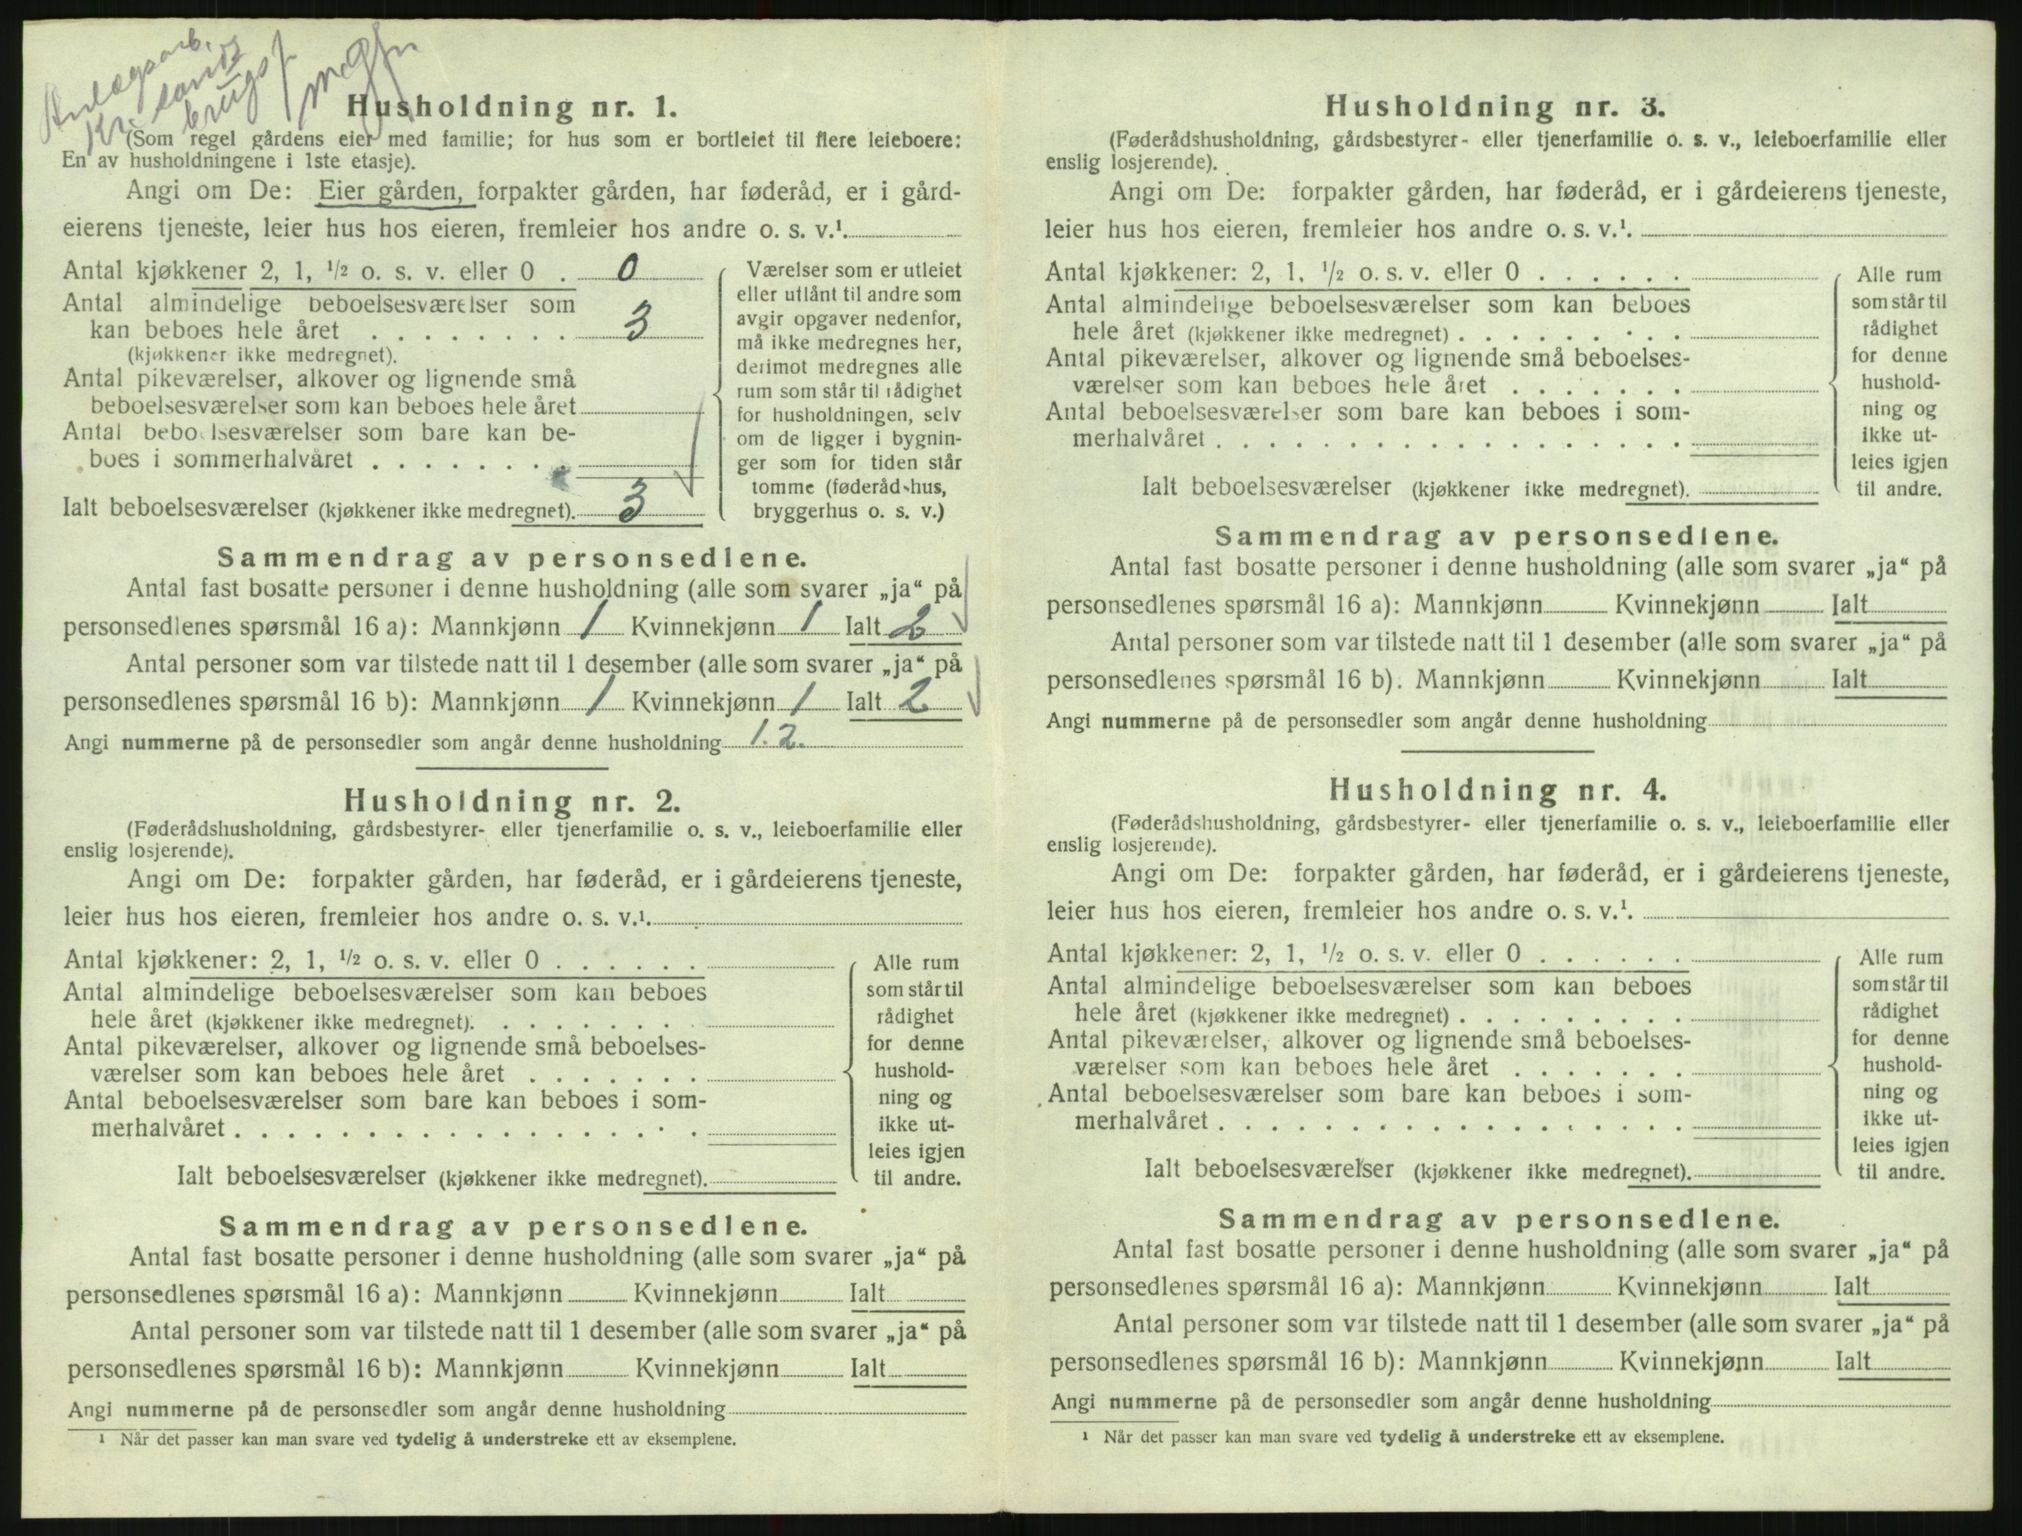 Anlægsarb.
Kr. sands
brugs f.
Husholdning nr. 1.
(Som regel gårdens eier med familie; for hus som er bortleiet til flere leieboere:
En av husholdningene i 1ste etasje).
Angi om De: Eier gården, forpakter gården, har føderåd, er i gård-
eierens tjeneste, leier hus hos eieren, fremleier hos andre o. s. v.¹
Antal kjøkkener 2, 1, 1/2 o. s. v. eller 0 . 0
Antal almindelige beboelsesværelser som
kan beboes hele året . . . . . . . . 3
(kjøkkener ikke medregnet).
Antal pikeværelser, alkover og lignende små
beboelsesværelser som kan beboes hele året
Antal beboelsesværelser som bare kan be-
boes i sommerhalvåret . . . . . . . .
Ialt beboelsesværelser (kjøkkener ikke medregnet). 3
Værelser som er utleiet
eller utlånt til andre som
avgir opgaver nedenfor,
må ikke medregnes her,
derimot medregnes alle
rum som står til rådighet
for husholdningen, selv
om de ligger i bygnin-
ger som for tiden står
tomme (føderådshus,
bryggerhus o. s. v.)
Sammendrag av personsedlene.
Antal fast bosatte personer i denne husholdning (alle som svarer „ja“ på
personsedlenes spørsmål 16 a): Mannkjønn 1 Kvinnekjønn 1 Ialt 2
Antal personer som var tilstede natt til 1 desember (alle som svarer „ja“ på
personsedlenes spørsmål 16 b): Mannkjønn 1 Kvinnekjønn 1 Ialt 2
Angi nummerne på de personsedler som angår denne husholdning 1. 2.
Husholdning nr. 2.
(Føderådshusholdning, gårdsbestyrer- eller tjenerfamilie o. s. v., leieboerfamilie eller
enslig losjerende).
Angi om De: forpakter gården, har føderåd, er i gårdeierens tjeneste,
leier hus hos eieren, fremleier hos andre o. s. v.¹
Antal kjøkkener: 2, 1, 1/2 o. s. v. eller 0 . . . . . .
Antal almindelige beboelsesværelser som kan beboes
hele året (kjøkkener ikke medregnet). . . . . . . . .
Antal pikeværelser, alkover og lignende små beboelses-
værelser som kan beboes hele året . . . . . . .
Antal beboelsesværelser som bare kan beboes i som-
merhalvåret . . . . . . . . . . . . . . . . . .
Ialt beboelsesværelser (kjøkkener ikke medregnet).
Alle rum
som står til
rådighet
for denne
hushold-
ning og
ikke ut-
leies igjen
til andre.
Sammendrag av personsedlene.
Antal fast bosatte personer i denne husholdning (alle som svarer „ja“ på
personsedlenes spørsmål 16 a): Mannkjønn Kvinnekjønn Ialt
Antal personer som var tilstede natt til 1 desember (alle som svarer „ja“ på
personsedlenes spørsmål 16 b): Mannkjønn Kvinnekjønn Ialt
Angi nummerne på de personsedler som angår denne husholdning
¹ Når det passer kan man svare ved tydelig å understreke ett av eksemplene.
Husholdning nr. 3.
(Føderådshusholdning, gårdsbestyrer- eller tjenerfamilie o. s. v., leieboerfamilie eller
enslig losjerende).
Angi om De: forpakter gården, har føderåd, er i gårdeierens tjeneste,
leier hus hos eieren, fremleier hos andre o. s. v.¹.
Antal kjøkkener: 2, 1, 1/2 o. s. v. eller 0 . . . . . .
Antal almindelige beboelsesværelser som kan beboes
hele året (kjøkkener ikke medregnet) . . . . . . . . .
Antal pikeværelser, alkover og lignende små beboelses-
værelser som kan beboes hele året . . . . . . .
Antal beboelsesværelser som bare kan beboes i som-
merhalvåret . . . . . . . . . . . . . . . . . .
Ialt beboelsesværelser (kjøkkener ikke medregnet).
Alle rum
som står til
rådighet
for denne
hushold-
ning og
ikke ut-
leies igjen
til andre.
Sammendrag av personsedlene.
Antal fast bosatte personer i denne husholdning (alle som svarer „ja“ på
personsedlenes spørsmål 16 a): Mannkjønn Kvinnekjønn Ialt
Antal personer som var tilstede natt til 1 desember (alle som svarer „ja“ på
personsedlenes spørsmål 16 b). Mannkjønn Kvinnekjønn Ialt
Angi nummerne på de personsedler som angår denne husholdning
Husholdning nr. 4.
(Føderådshusholdning, gårdsbestyrer- eller tjenerfamilie o. s. v., leieboerfamilie eller
enslig losjerende).
Angi om De: forpakter gården, har føderåd, er i gårdeierens tjeneste,
leier hus hos eieren, fremleier hos andre o. s. v.¹.
Antal kjøkkener: 2, 1, 1/2 o. s. v. eller 0 . . . . . .
Antal almindelige beboelsesværelser som kan beboes
hele året (kjøkkener ikke medregnet) . . . . . . . . .
Antal pikeværelser, alkover og lignende små beboelses-
værelser som kan beboes hele året . . . . . . .
Antal beboelsesværelser som bare kan beboes i som-
merhalvåret . . . . . . . . . . . . . . . . . .
Ialt beboelsesværelser (kjøkkener ikke medregnet).
Alle rum
som står til
rådighet
for denne
hushold-
ning og
ikke ut-
leies igjen
til andre.
Sammendrag av personsedlene.
Antal fast bosatte personer i denne husholdning (alle som svarer „ja“ på
personsedlenes spørsmål 16 a): Mannkjønn Kvinnekjønn Ialt
Antal personer som var tilstede natt til 1 desember (alle som svarer „ja“ på
personsedlenes spørsmål 16 b): Mannkjønn Kvinnekjønn Ialt
Angi nummerne på de personsedler som angår denne husholdning
¹ Når det passer kan man svare ved tydelig å understreke ett av eksemplene.